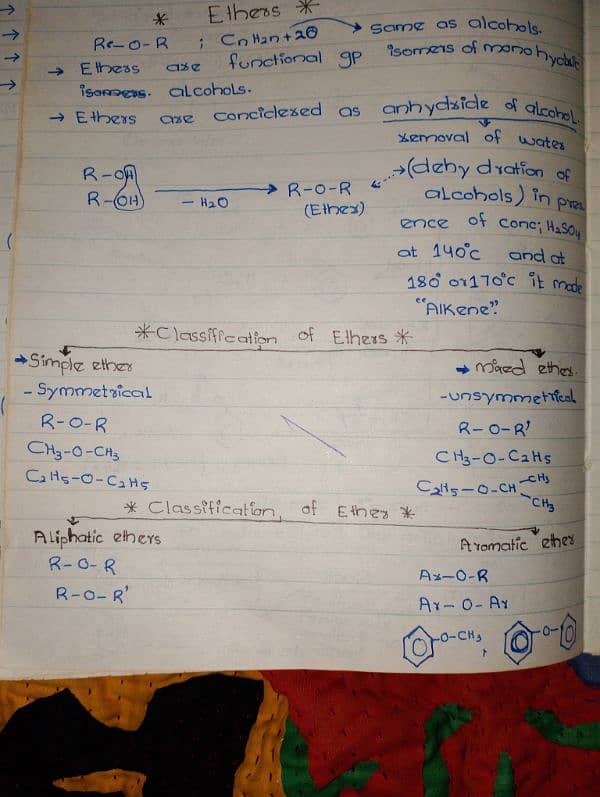 * Ethers *
R-O-R ; CnH2n+2O → same as alcohols.
→ Ethers are functional gp isomers of monohydric
isomers. alcohols.
→ Ethers are concidered as anhydride of alcohol.
removal of water
R-OH
R-OH
- H2O
R-O-R
(Ether)
→(dehydration of
alcohols) in pres
ence of conc; H2SO4
at 140°c and at
180° or 170°c it made
"Alkene".
*Classification of Ethers *
→Simple ether
- Symmetrical
R-O-R
CH3-O-CH3
C2H5-O-C2H5
→ mixed ether.
-unsymmetrical
R-O-R'
CH3-O-C2H5
C2H5-O-CH
CH3
CH3
* Classification of Ether *
Aliphatic ethers
R-O-R
R-O-R'
Aromatic ether
Ar-O-R
Ar-O-Ar
-O-CH3 , -O-